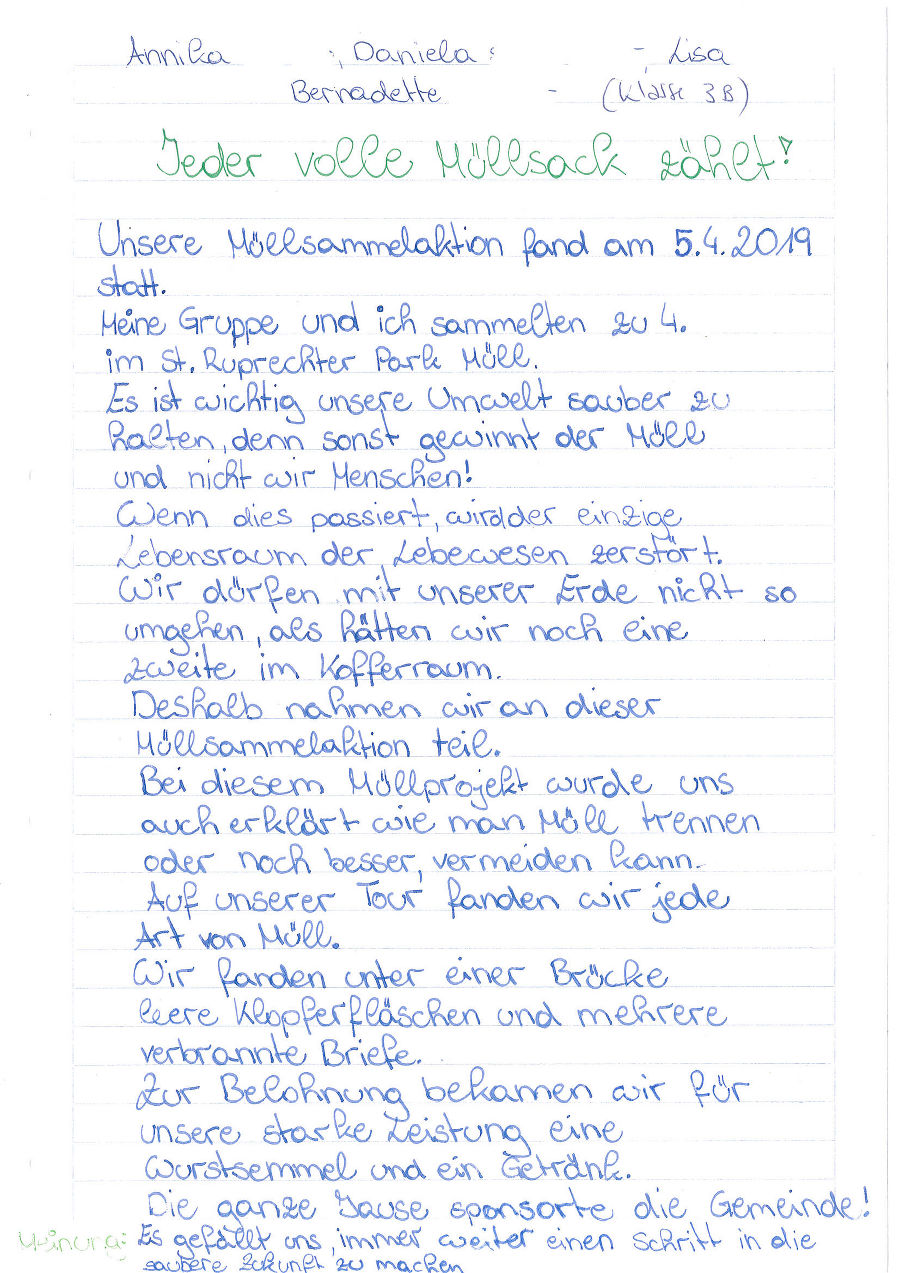 Annika ; Daniela : - Lisa
Bernadette - (Klasse 3B)
Jeder volle Müllsack zählt!
Unsere Müllsammelaktion fand am 5.4.2019
statt.
Meine Gruppe und ich sammelten zu 4.
im St. Ruprechter Park Müll.
Es ist wichtig unsere Umwelt sauber zu
halten, denn sonst gewinnt der Müll
und nicht wir Menschen!
Wenn dies passiert, wird der einzige
Lebensraum der Lebewesen zerstört.
Wir dürfen mit unserer Erde nicht so
umgehen, als hätten wir noch eine
zweite im Kofferraum.
Deshalb nahmen wir an dieser
Müllsammelaktion teil.
Bei diesem Müllprojekt wurde uns
auch erklärt wie man Müll trennen
oder noch besser, vermeiden kann.
Auf unserer Tour fanden wir jede
Art von Müll.
Wir fanden unter einer Brücke
leere Klopferfläschen und mehrere
verbrannte Briefe.
Zur Belohnung bekamen wir für
unsere starke Leistung eine
Wurstsemmel und ein Getränk.
Die ganze Jause sponsorte die Gemeinde!
Meinung: Es gefällt uns, immer weiter einen Schritt in die
saubere Zukunft zu machen